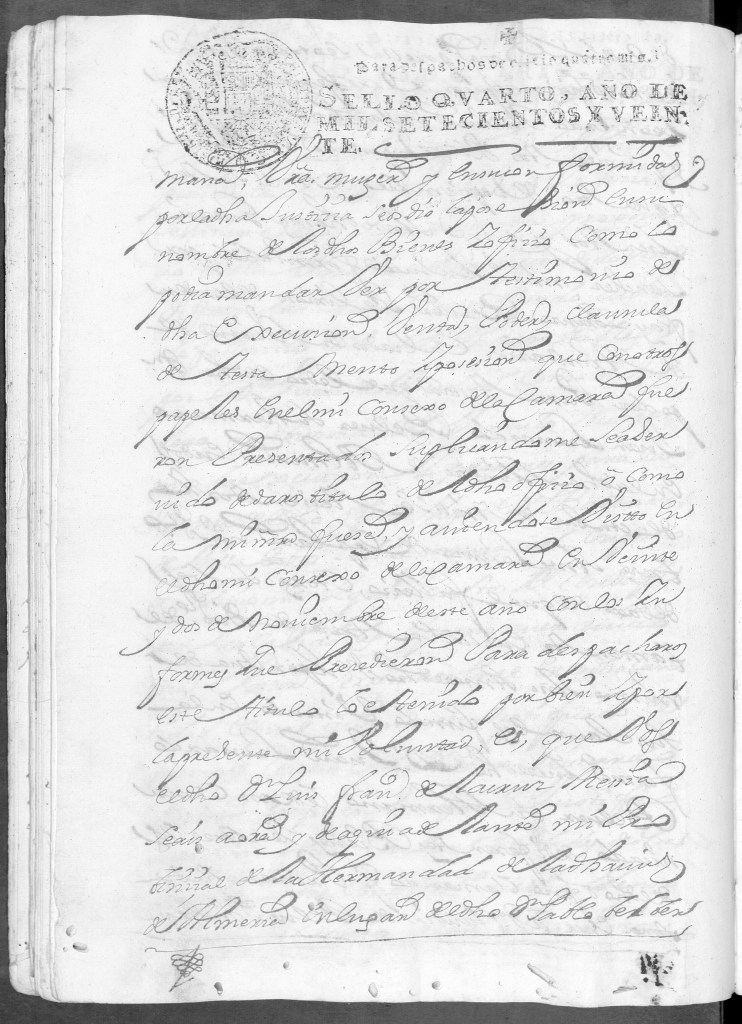 Para despachos de oficio quatro mrs.
SELLO QVARTO, AÑO DE
MIL SETECIENTOS Y VEIN-
TE.
mana, Vra. muger y en su conformidad
por la dha Justicia se os dio la posesion en su
nombre de los dhos Bienes y ofiio Como lo
podia mandar Ver por testimonio de
dha Execuzion, Venta, Poder, Clausula
de testa Mento y posesion que Con otros
papeles en el mi Consexo de la Camara fue
ron Presentados Suplicandome Sea ser
uido de daros titulo de el dho ofiio ô Como
la mi mrd. fuese, y auiendose Visto En
el dho mi Consexo de la Camara En Veinte
y dos de Nouiembre de este año Con los Yn
formes que Prezedieron Para despacharos
este titulo loe tenido por bien Y por
la presente mi Voluntad, es, que Vos
el dho Dn. Luis Franco. de la cruz Mesia
seais aora y de aqui adelante mi Pro
binzial de la Hermandad de la dha ciud.
de Almeria en lugar de el dho Dn. Pablo